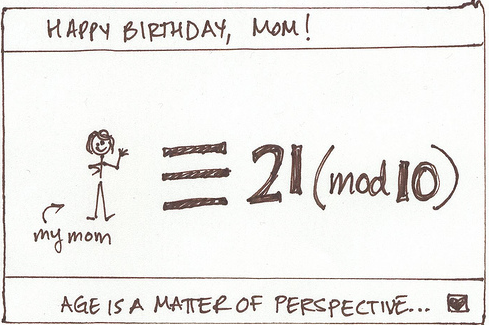 HAPPY BIRTHDAY, MOM!
≡ 21 (mod 10)
my mom
AGE IS A MATTER OF PERSPECTIVE...